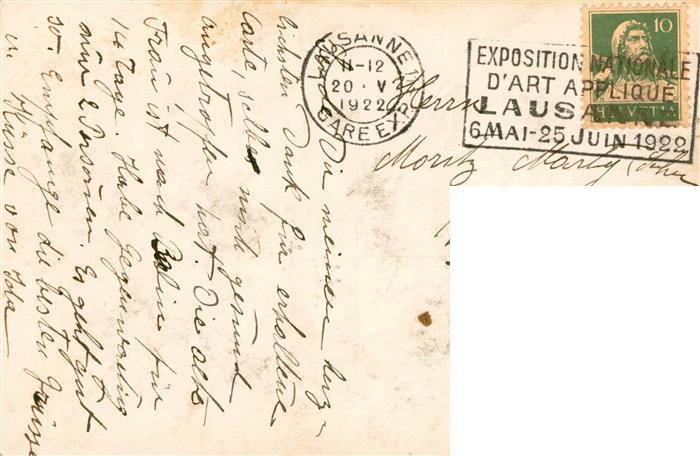 LAUSANNE 1
11-12
20 · V
1922
GARE EXP.
EXPOSITION NATIONALE
D'ART APPLIQUÉ
LAUSANNE
6 MAI-25 JUIN 1922
10
HELVETIA
Herrn
Moritz Marty
Dir meinen herz-
lichsten Dank für erhaltene
Karte, selbe mich gesund
angetroffen hat. Die alte
Frau ist nach für
14 Tage. Habe Gegenwärtig
nur 2 Personen. Es geht gut
so. Empfange die besten Grüsse
u Küsse von Ida